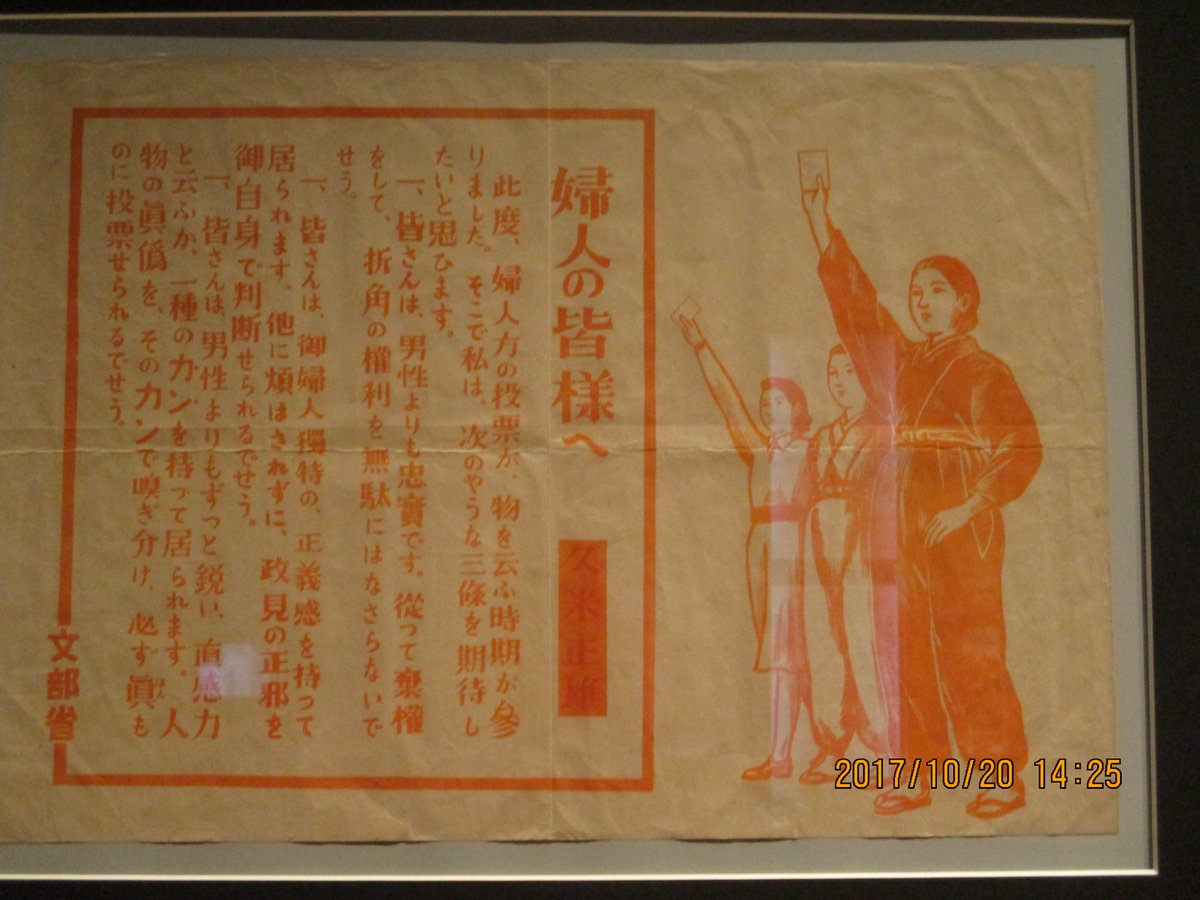 婦人の皆様へ
久米正雄
此度、婦人方の投票が、物を云ふ時期が參
りました。そこで私は、次のやうな三條を期待し
たいと思ひます。
一、皆さんは、男性よりも忠實です。從って棄權
をして、折角の權利を無駄にはなさらないで
せう。
一、皆さんは、御婦人獨特の、正義感を持って
居られます、他に煩はされずに、政見の正邪を
御自身で判断せられるでせう。
一、皆さんは、男性よりもずっと鋭い、直感力
と云ふか、一種のカンを持って居られます。人
物の眞僞を、そのカンで嗅ぎ分け、必ず眞も
のに投票せられるでせう。
文部省
2017/10/20 14:25